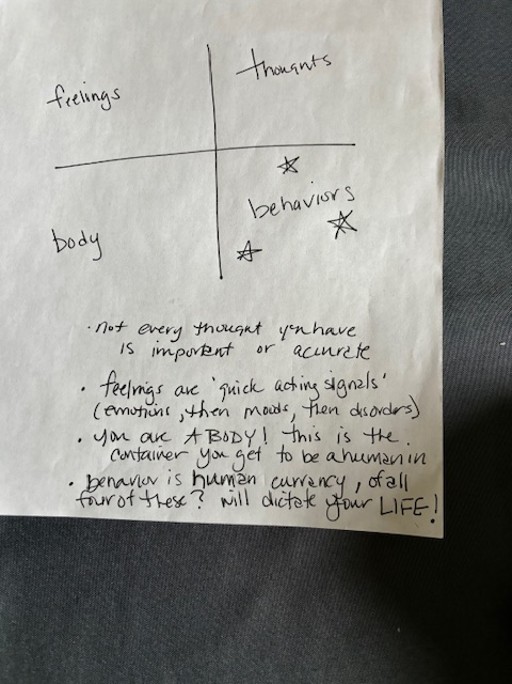 feelings
thoughts
body
behaviors
· not every thought you have
is important or accurate
· feelings are 'quick acting signals'
(emotions, then moods, then disorders)
· you are A BODY! this is the
container you get to be a human in
· behavior is human currency, of all
four of these? will dictate your LIFE!